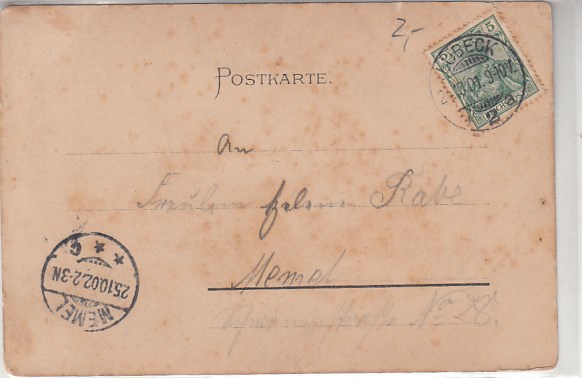 2,-
5
LÜBECK
9-10V.
2 a
POSTKARTE.
An
Fräulein Helene Rabe
Memel
straße No
MEMEL
25.10.02.2-3N
* * C